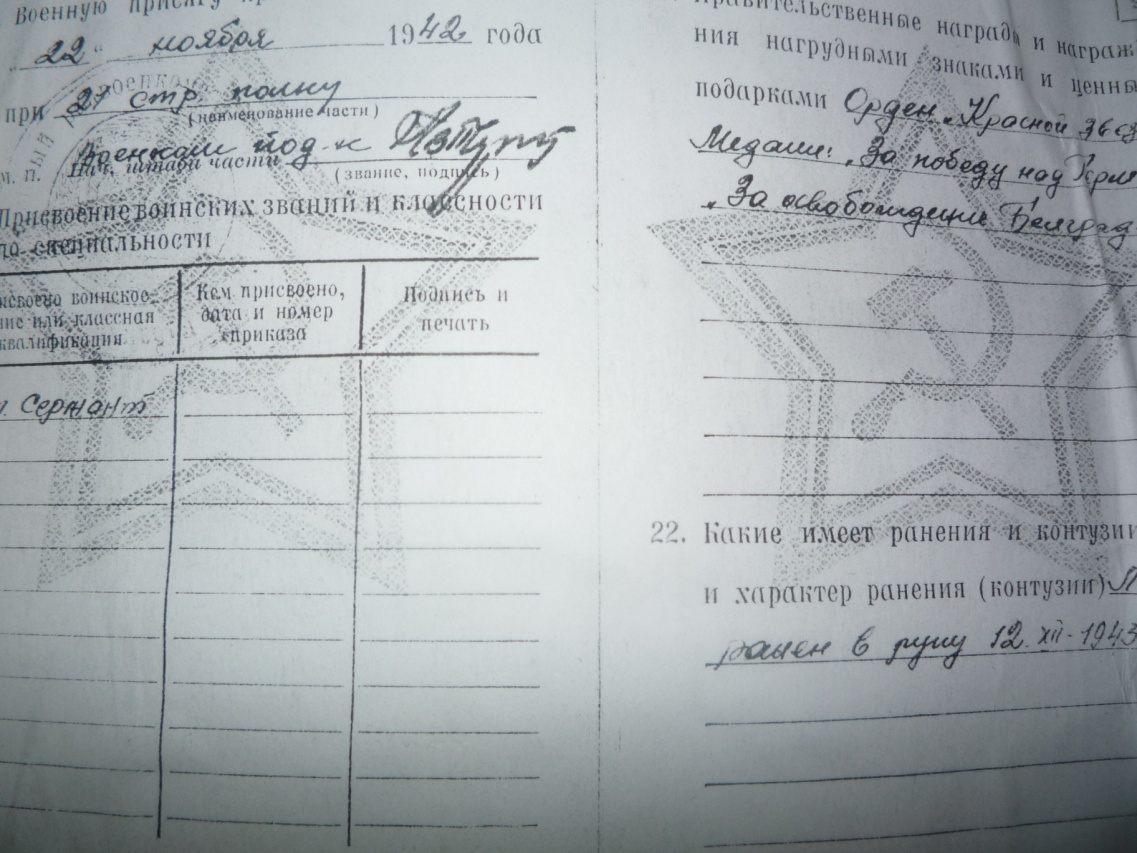 Военную присягу
"22" ноября 1942 года
при 27 стр. полку
(наименование части)
Военком под-к
м. п. Нач. штаба части
(звание, подпись)
Присвоение воинских званий и классности
по специальности
воинское
или классная
квалификация
Кем присвоено,
дата и номер
приказа
Подпись и
печать
Сержант
Правительственные награды и награж
ния нагрудными знаками и ценны
подарками Орден „Красной звез
Медали: „За победу над Герм
„За освобождение Белград
22. Какие имеет ранения и контузии
и характер ранения (контузии)
ранен в руку 12.XII-1943